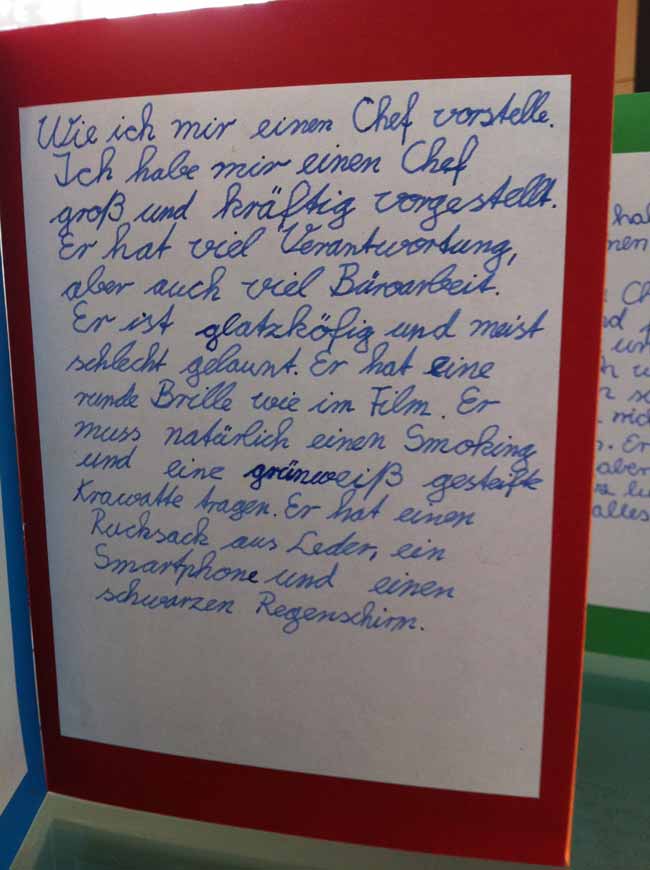 Wie ich mir einen Chef vorstelle.
Ich habe mir einen Chef
groß und kräftig vorgestellt.
Er hat viel Verantwortung,
aber auch viel Büroarbeit.
Er ist glatzköfig und meist
schlecht gelaunt. Er hat eine
runde Brille wie im Film. Er
muss natürlich einen Smoking
und eine grünweiß gesteifte
Krawatte tragen. Er hat einen
Rucksack aus Leder, ein
Smartphone und einen
schwarzen Regenschirm.
hal
nen
Ch
nd
un
. Er
aber
alles